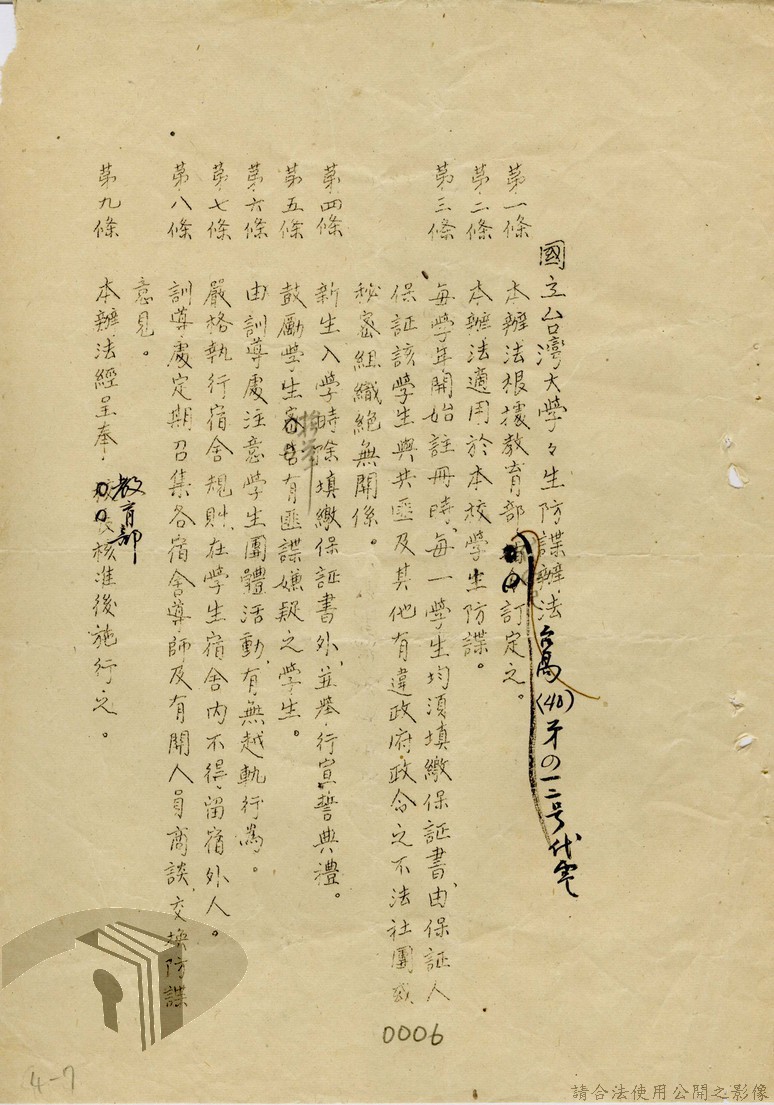 國立台灣大學々生防諜辦法
台高(40)才〇一二号代電
第一條 本辦法根據教育部訂定之。
第二條 本辦法適用於本校學生防諜。
第三條 每學年開始註冊時，每一學生均須填繳保証書，由保証人
保証該學生與共匪及其他有違政府政令之不法社團或
秘密組織絕無關係。
第四條 新生入學時除填繳保証書外，並舉行宣誓典禮。
第五條 鼓勵學生檢舉有匪諜嫌疑之學生。
第六條 由訓導處注意學生團體活動，有無越軌行為。
第七條 嚴格執行宿舍規則，在學生宿舍內不得留宿外人。
第八條 訓導處定期召集各宿舍導師及有關人員商談，交換防諜
意見。
第九條 本辦法經呈奉教育部核准後施行之。
0006
4-7
請合法使用公開之影像